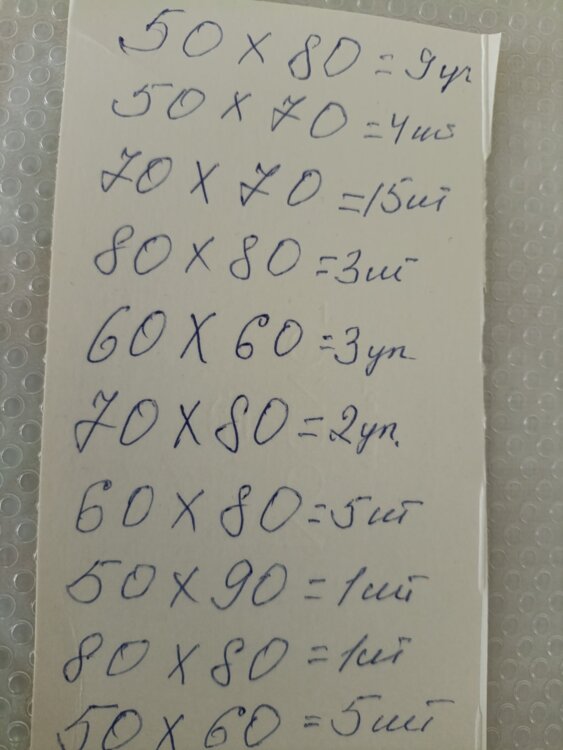 50 x 80 = 9 уп
50 x 70 = 4 шт
70 x 70 = 15 шт
80 x 80 = 3 шт
60 x 60 = 3 уп
70 x 80 = 2 уп.
60 x 80 = 5 шт
50 x 90 = 1 шт
80 x 80 = 1 шт
50 x 60 = 5 шт